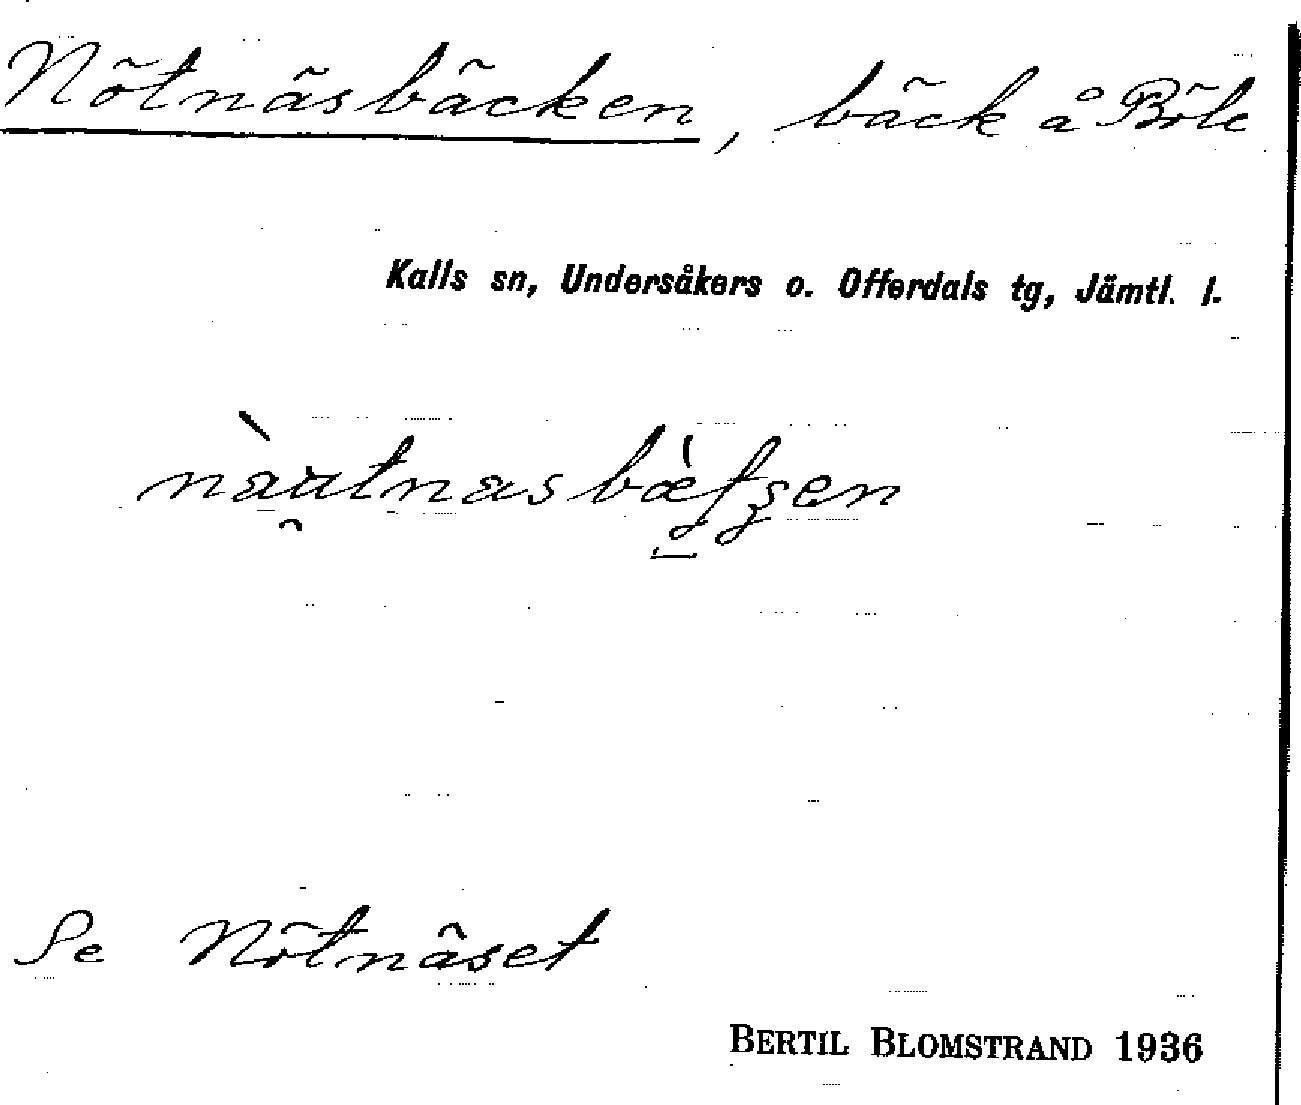 Nötnäsbäcken, bäck å Böle
Kalls sn, Undersåkers o. Offerdals tg, Jämtl. l.
Se Nötnäset
BERTIL BLOMSTRAND 1936